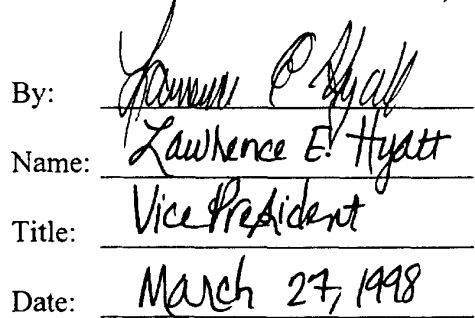 By: Lawrence E Hyatt
Name: Lawrence E. Hyatt
Title: Vice President
Date: March 27, 1998